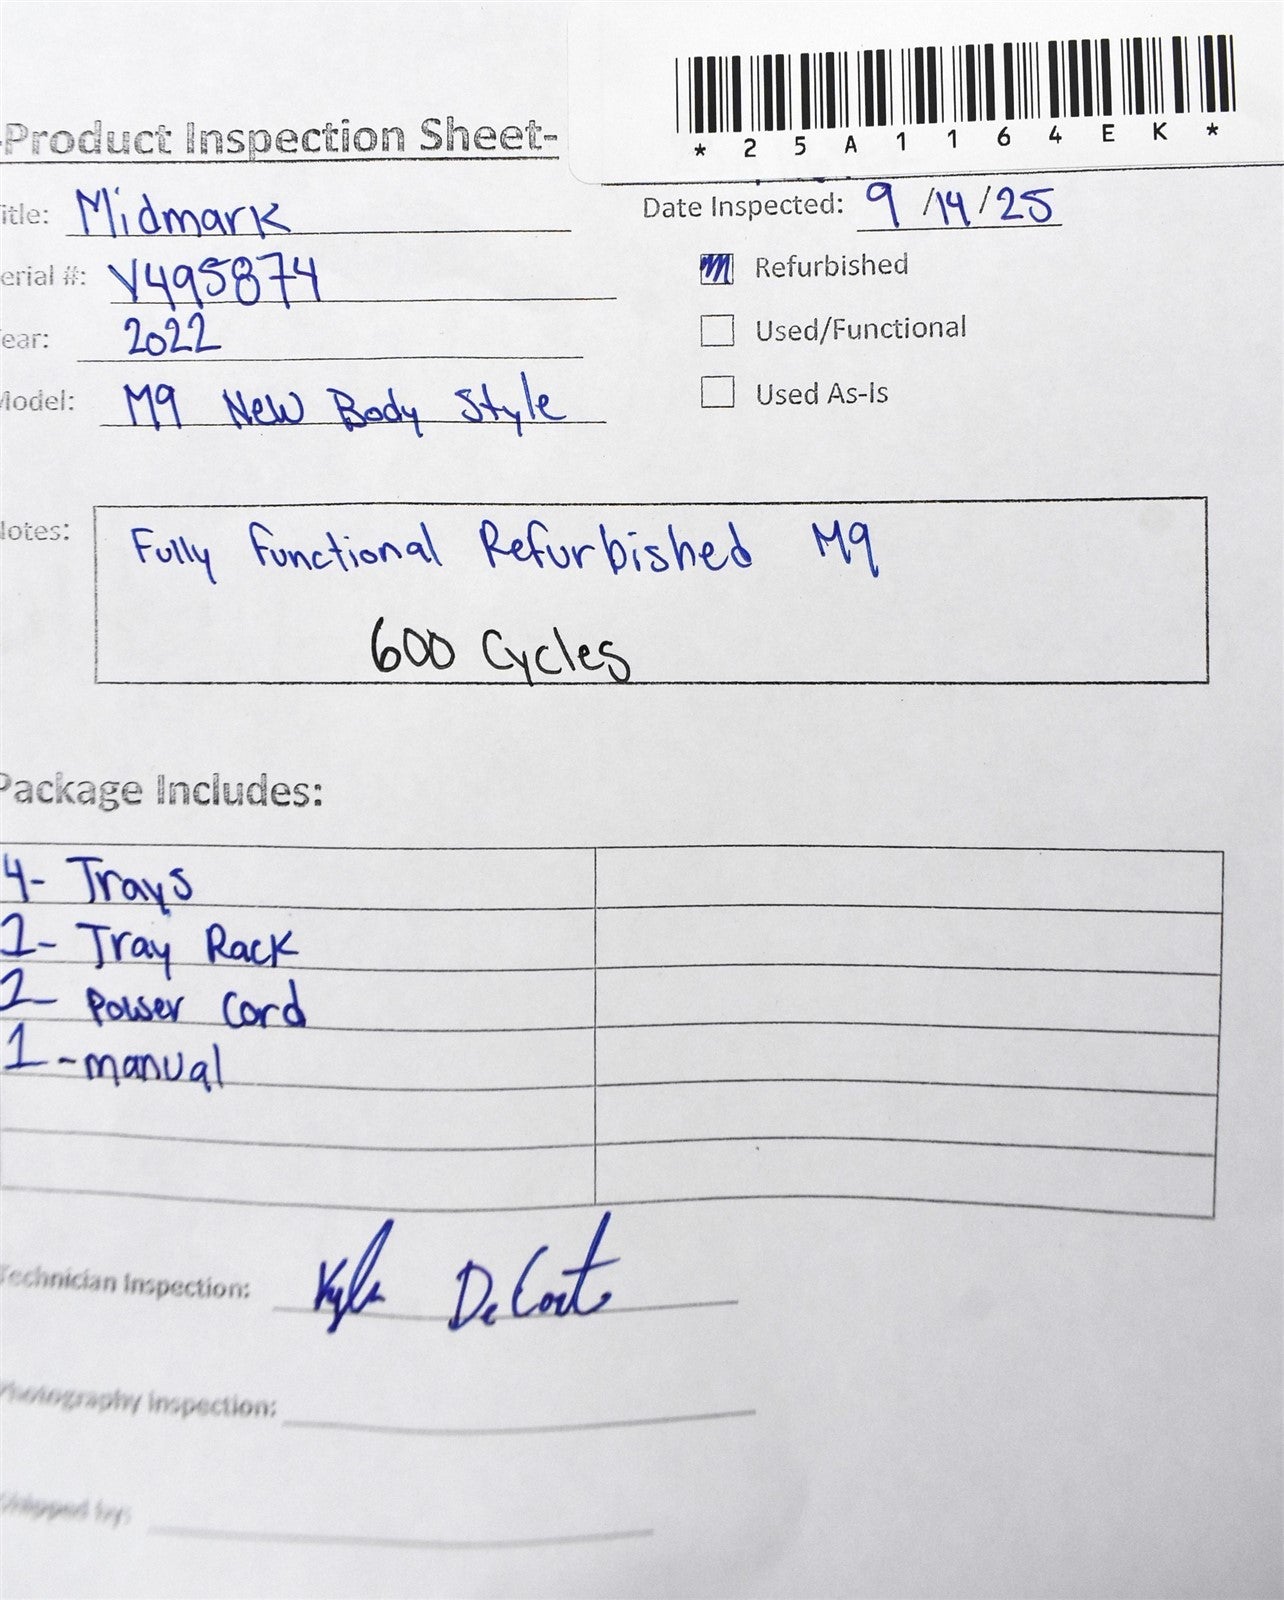 *25A1164EK*
-Product Inspection Sheet-
itle: Midmark
Date Inspected: 9/14/25
erial #: V495874
Refurbished
ear: 2022
Used/Functional
Model: M9 New Body Style
Used As-Is
Notes: Fully Functional Refurbished M9
600 Cycles
Package Includes:
4- Trays
1- Tray Rack
1- Power Cord
1-manual
Technician Inspection: Kyle DeCoste
Photography Inspection:
Shipped by: